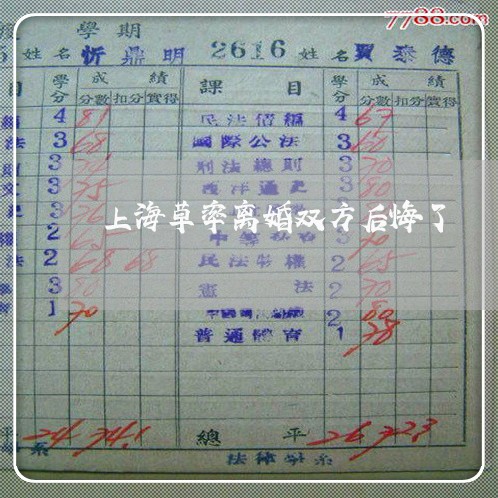 7788.com
學期
姓名 忻鼎明 2616 姓名 賈泰德
目 學分 成績 課目 學分 成績
分數 扣分 實得 分數 扣分 實得
4 81 民法債編 4 67
法 3 68 國際公法 3 60
3 刑法總則 3 70
3 75 西洋通史 3 80
3 76 3
上海草率离婚双方后悔了
2 65 70
法 2 68 68 民法物權 2 65
3 80 憲法 2 70
1 70 2 80
普通體育 1 78
平 24 74.1 總平 26 72.3
系 法律學系